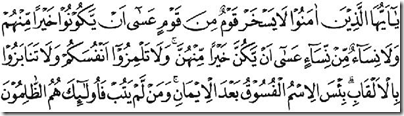 يَٓا اَيُّهَا الَّذٖينَ اٰمَنُوا لَا يَسْخَرْ قَوْمٌ مِنْ قَوْمٍ عَسٰٓى اَنْ يَكُونُوا خَيْرًا مِنْهُمْ
وَلَا نِسَٓاءٌ مِنْ نِسَٓاءٍ عَسٰٓى اَنْ يَكُنَّ خَيْرًا مِنْهُنَّۚ وَلَا تَلْمِزُٓوا اَنْفُسَكُمْ وَلَا تَنَابَزُوا
بِالْاَلْقَابِۜ بِئْسَ الْاِسْمُ الْفُسُوقُ بَعْدَ الْاٖيمَانِۚ وَمَنْ لَمْ يَتُبْ فَاُو۬لٰٓئِكَ هُمُ الظَّالِمُونَ